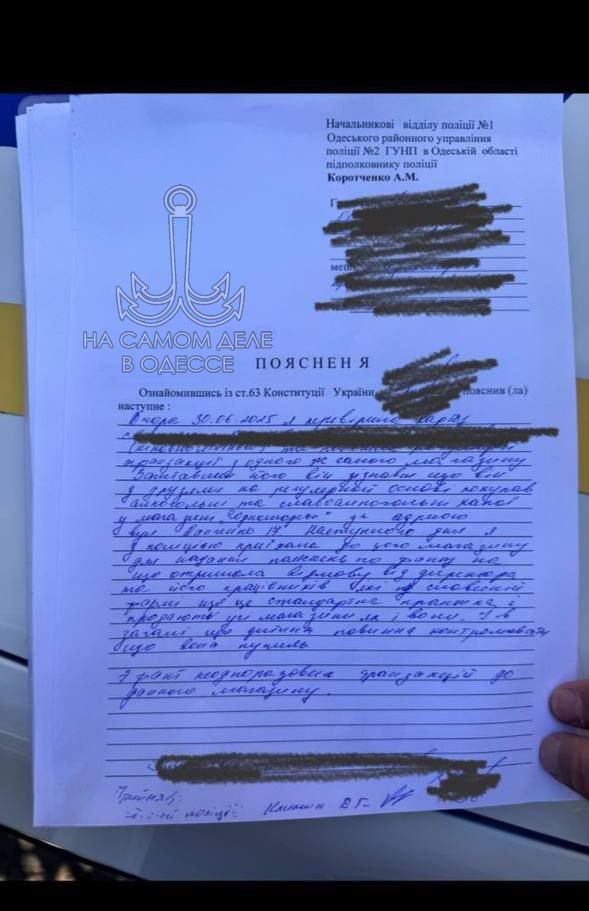 Начальникові відділу поліції №1
Одеського районного управління
поліції №2 ГУНП в Одеській області
підполковнику поліції
Коротченко А.М.
НА САМОМ ДЕЛЕ
В ОДЕССЕ
ПОЯСНЕН Я
Ознайомившись із ст.63 Конституції України пояснив (ла)
наступне :
Вчора 30.06.2025 я перевірила картку
транзакції одного ж самого магазину
Запитавши його він що він
з друзями на регулярной основі купував
алкогольні та слабоалкогольні напої
у магазині за адресою
вул 17. Наступного дня я
з поліцією приїхала до цього магазину
для надання по факту на
що отримала відмову від директора
та його працівників які в словесній
формі що це стандартна практика і
продають усі магазини як і вони. І в
загалі що дитина повинна контролювати
що вона
І факт неодноразових транзакцій до
даного магазину.